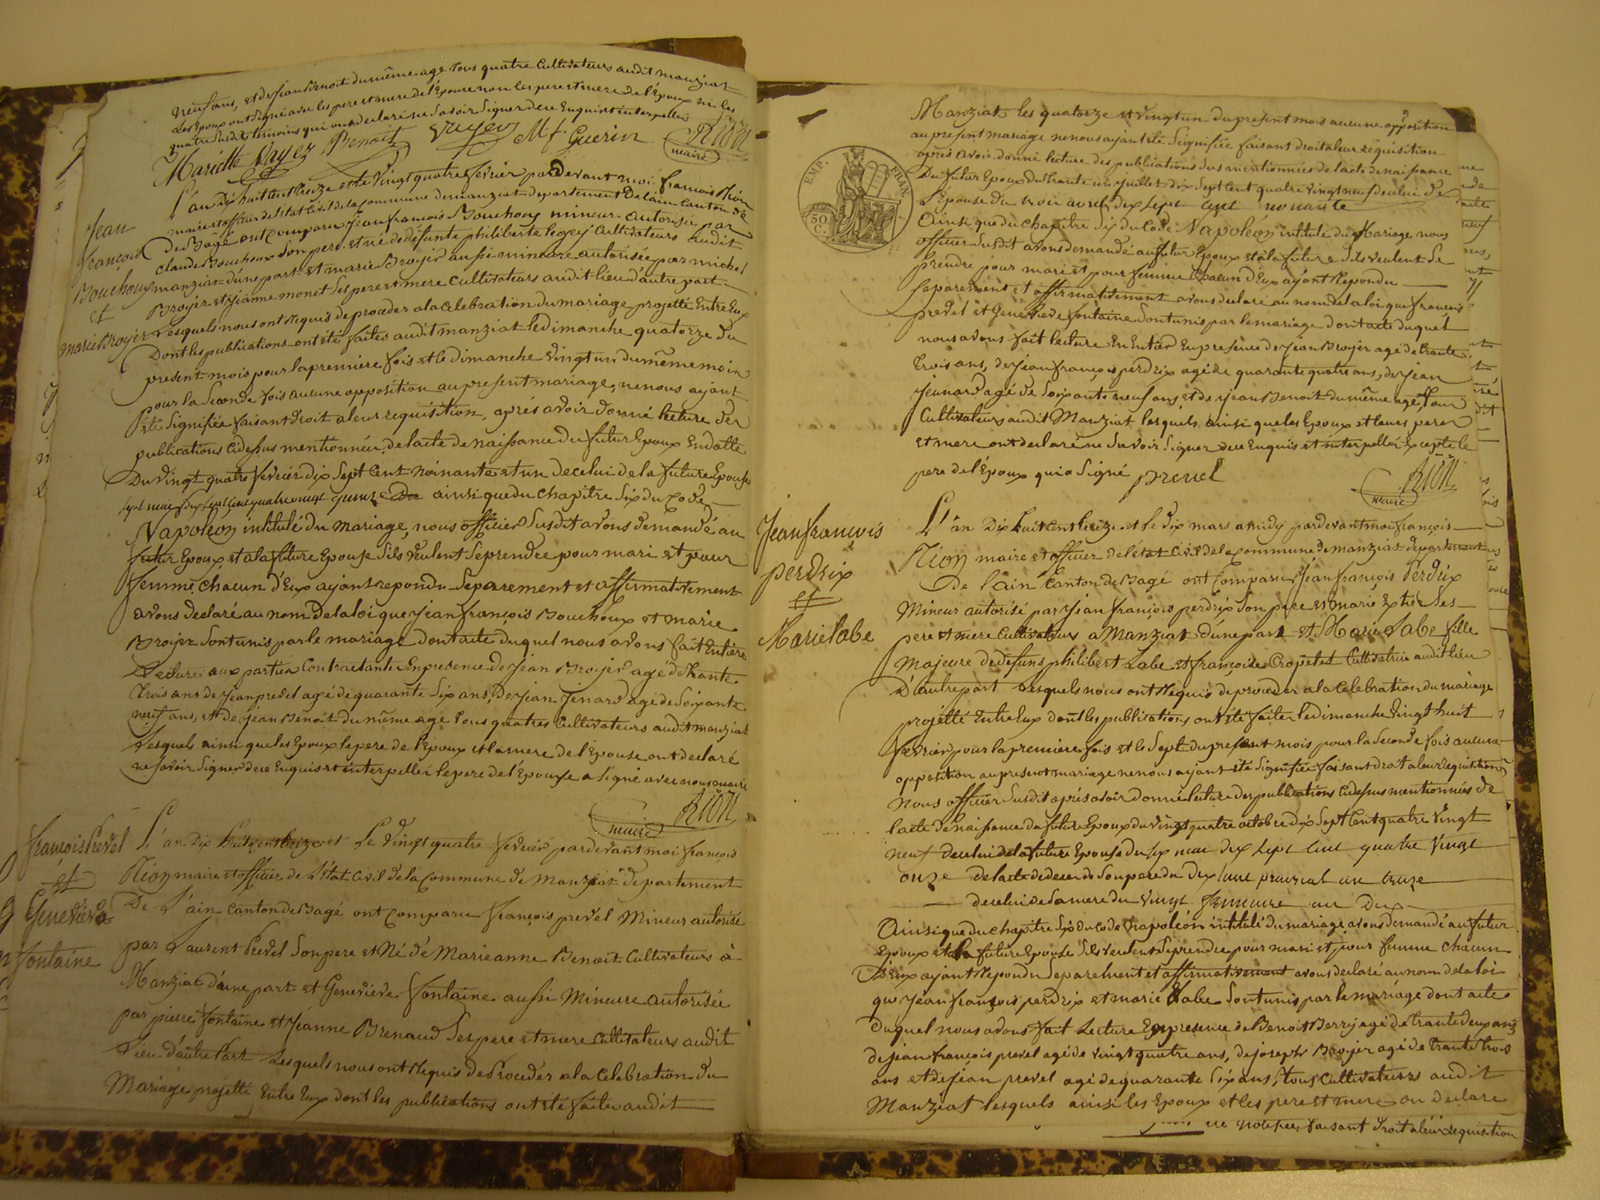 neuf ans, et de jean Benoit du même age tous quatre Cultivateurs audit manziat
les Epoux ont Signé avec les pere et mere de l'Epouse non les pere et mere de l'Epoux ni les
quatre Susdits temoins qui ont declaré ne Savoir Signer de ce Enquis et interpellés
Mariette Bayez Benoit M f Guerin Rion
maire
Jean
françois
Bouchoux
et
marie Broyer
L'an dix huit cent treize et le Vingt quatre fevrier pardevant moi françois Rion
maire et officier de l'état Civil de la commune de manziat departement De l'ain Canton de
De Bagé ont Comparu Jean françois Bouchoux mineur autorisé par
claude Bouchoux Son pere et né de defunte philiberte Royer Cultivateurs audit
manziat d'une part et marie Broyer aussi mineure autorisée par michel
Broyer et jeanne monet Ses pere et mere Cultivateurs audit lieu d'autre part
Lesquels nous ont Requis de proceder a la Celebration du mariage projetté Entre Eux
Dont les publications ont été faites audit manziat le dimanche quatorze du
present mois pour la premiere fois et le dimanche vingt un du même mois
pour la Seconde fois aucune opposition au present mariage, ne nous ayant
été Signifiée faisant droit a leur requisition, après avoir donné lecture des
publications cidessus mentionnées, de l'acte de Naissance du futur Epoux En datte
Du vingt quatre fevrier dix Sept Cent Noinante et un de celui de la future Epouse
ainsi que du Chapitre Six du Code
Napoleon intitulé du Mariage, nous officier Susdit avons demandé au
futur Epoux et a la future Epouse S'ils veulent Se prendre pour mari et pour
femme, Chacun d'Eux ayant repondu Séparement et affirmativement
avons declaré au nom De la loi que Jean françois Bouchoux et marie
Broyer Sont unis par le mariage dont acte duquel nous avons fait Entiere
Lecture aux parties Contractantes En presence de jean Broyer agé de trante
trois ans de jean prevel agé de quarante Six ans, de jean Jenard agé de Soixante
neuf ans, et de jean Benoit du même age tous quatres Cultivateurs audit manziat
Lesquels ainsi que les Epoux le pere de l'Epoux et la mere de l'Epouse ont declaré
ne Savoir Signer de ce Enquis et interpellés le pere de l'Epouse a Signé avec nous maire
Rion
maire
françois Prevel
et
Genevieve
fontaine
L'an dix huit cent treize et Le Vingt quatre fevrier pardevant moi françois
Rion maire et officier de l'état Civil de la Commune de Manziat departement
De L'ain Canton de Bagé ont Comparu françois prevel Mineur autorisé
par Laurent Prevel Son pere et Né de Marieanne Benoit Cultivateurs à
Manziat d'une part et Genevieve fontaine aussi Mineure autorisée
par pierre fontaine et jeanne Brenaud Ses pere et mere Cultivateurs audit
Lieu d'autre Part Lesquels nous ont Requis de Proceder a la Celebration du
Mariage projetté Entre Eux dont les publications ont été faites audit
EMP. FRAN.
50 C.
Manziat les quatorze et vingt un du present mois aucune opposition
au present mariage ne nous ayant été Signifiée faisant droit a leur requisition
après avoir donné lecture des publications cidessus mentionnées de l'acte de naissance
Du futur Epoux du trante un juillet dix Sept Cent quatre vingt neuf de celui de
l'Epouse du trois avril dix Sept Cent nonante
Ainsi que du Chapitre Six du Code Napoléon intitulé du Mariage nous
officier Susdit avons demandé au futur Epoux et a la future S'ils veulent Se
prendre pour mari et pour femme Chacun d'Eux ayant Repondu
Separement et affirmativement avons declaré au nom de la loi que francois
prevel et Genevieve fontaine Sont unis par le mariage dont acte duquel
nous avons fait lecture En Entier En presence de jean Broyer agé de trante
trois ans, de jean françois perdrix agé de quarante quatre ans, de jean
Jenard agé de Soixante neuf ans, et de jean Benoit du même age tous
Cultivateurs audit Manziat lesquels ainsi que les Epoux et leurs pere
et mere ont declaré ne Savoir Signer de ce Enquis et interpellés Excepté le
pere de l'Epoux qui a Signé prevel
Rion
maire
Jean francois
perdrix
et
Marie Labe
L'an Dix huit Cent treize et le dix mars a midy pardevant moi françois
Rion maire et officier de l'état Civil de la commune de manziat departement
De l'ain Canton de Bagé ont Comparu Jean françois Perdrix
Mineur autorisé par jean françois perdrix Son pere et marie Extier Ses
pere et mere Cultivateurs a Manziat d'une part et Marie Labe fille
majeure de defuns philibert Labe et françoise Cropetet Cultivatrice audit lieu
D'autre part Lesquels nous ont Requis de proceder a la Celebration du mariage
projetté Entre Eux dont les publications ont été faites le dimanche vingt huit
fevrier pour la premiere fois et le Sept du present mois pour la Seconde fois aucune
opposition au present mariage ne nous ayant été Signifiée faisant droit a leur requisition
Nous officier Susdit après avoir donné lecture des publications cidessus mentionnées de
l'acte de Naissance du futur Epoux du vingt quatre octobre dix Sept Cent quatre vingt
neuf de celui de la future Epouse du Six mai dix Sept Cent quatre vingt
onze de l'acte de deces de Son pere du dix
de celui de Sa mere du vingt
Ainsi que du chapitre Six du Code Napoléon intitulé du mariage avons demandé au futur
Epoux et a la future Epouse S'ils veulent Se prendre pour mari et pour femme chacun
D'Eux ayant Repondu Separement et affirmativement avons declaré au nom de la loi
que jean françois perdrix et marie Labe Sont unis par le mariage dont acte
Duquel nous avons fait Lecture En presence de Benoit Berry agé de trante deux ans
de jean francois prevel agé de vingt quatre ans, de joseph Broyer agé de trante trois
ans et de jean prevel agé de quarante Six ans tous Cultivateurs audit
Manziat lesquels ainsi les Epoux et les pere et mere on declaré
ne notifiée, faisant Droit a leur Requisition